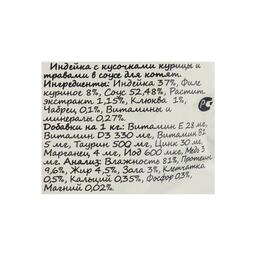 Индейка с кусочками курицы и
травами в соусе для котят.
Ингредиенты: Индейка 37%, Филе
куриное 8%, Соус 52,48%, Растит
экстракт 1,15%, Клюква 1%,
Чабрец 0,1%, Витамины и
минералы 0,27%.
Добавки на 1 кг.: Витамин Е 28 мг,
Витамин D3 330 мг, Витамин В1
5 мг, Таурин 500 мг, Цинк 30 м
Марганец 4 мг, Йод 600 мкг, Медь 3
мг. Анализ: Влажность 81%, Протеины
9,6%, Жир 4,5%, Зола 3%, Клетчатка
0,5%, Кальций 0,35%, Фосфор 0,3%,
Магний 0,02%.